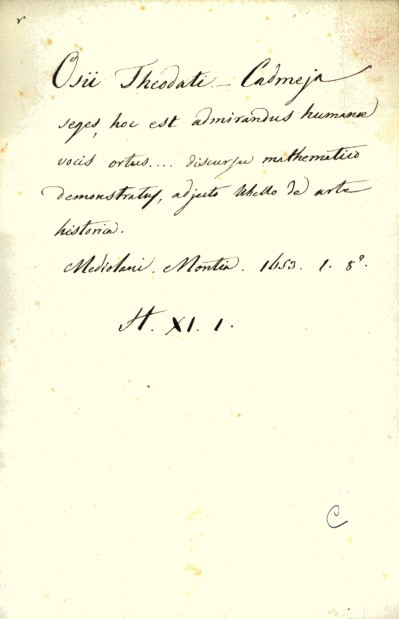 r
Osii Theodati – Cadmeja
seges, hoc est admirandus humanæ
vocis ortus.... discursu mathematico
demonstratus, adjecto libello de arte
historica.
Mediolani. Montia. 1653. 1. 8º.
H. XI. 1.
C